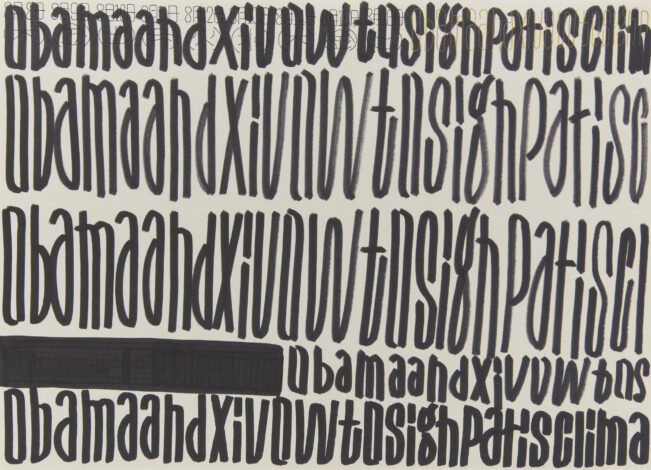 obamaandxivowtosighpatisclim
obamaandxivowtosighpatisc
obamaandxivowtosighpatiscl
obamaandxivowtos
obamaandxivowtosighpatisclima